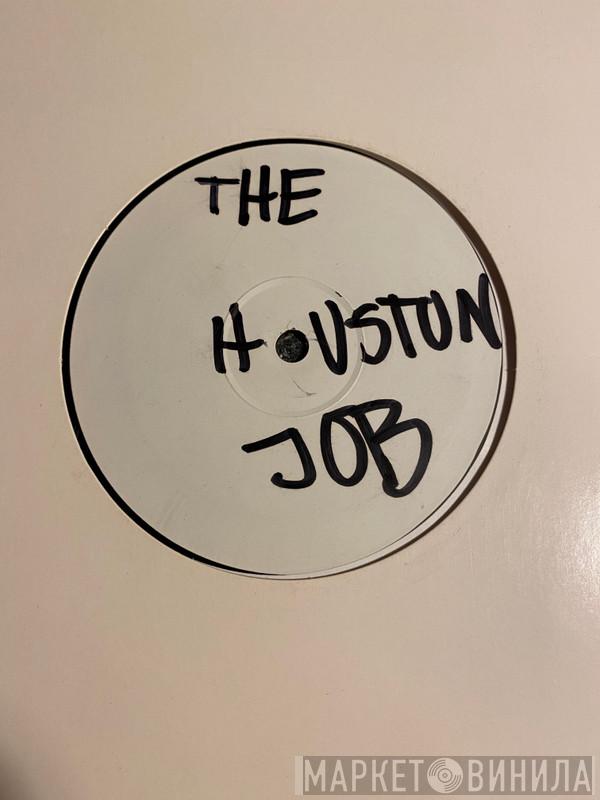 THE
HOUSTUN
JOB
МАРКЕТ ВИНИЛА